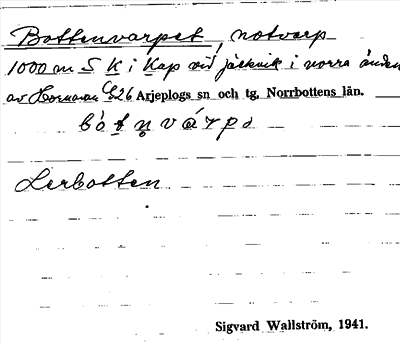 Bottenvarpet, notvarp
1000 m S K i Kap vid jäckvik i norra änden
av Hornavan C626 Arjeplogs sn och tg, Norrbottens län.
Lerbotten
Sigvard Wallström, 1941.